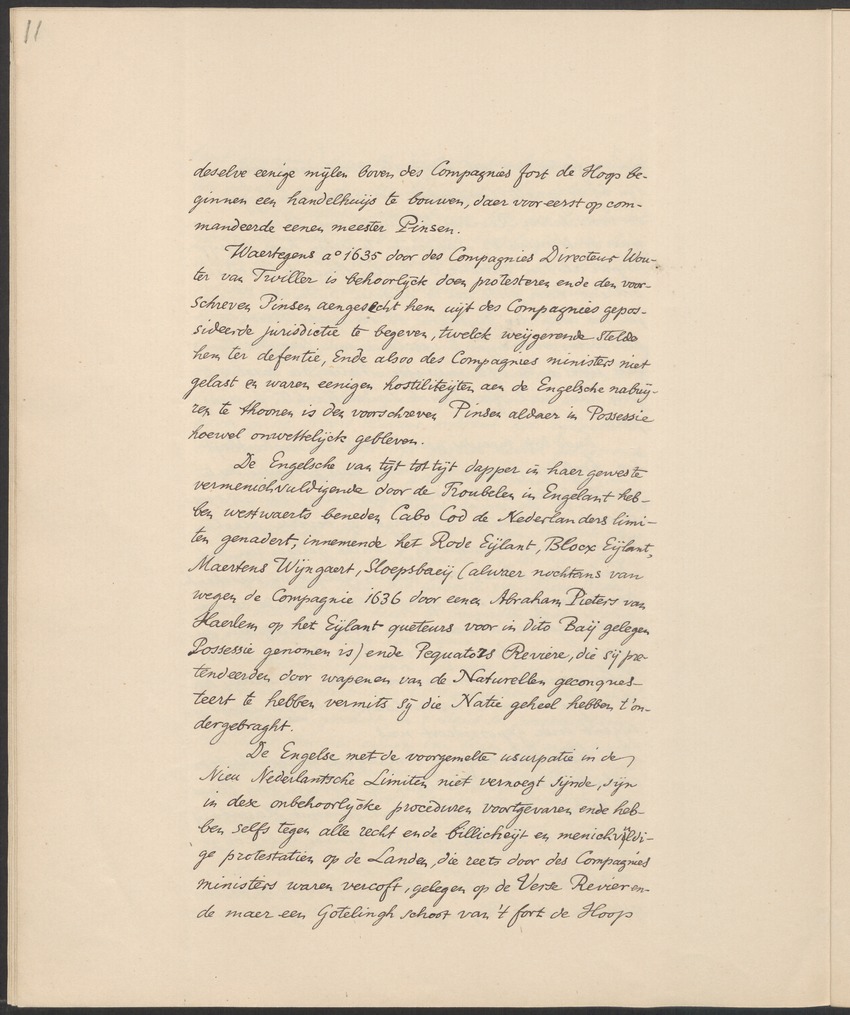 11
deselve eenige mijlen boven des Compagnies fort de Hoop be-
ginnen een handelhuijs te bouwen, daer voor eerst op com-
mandeerde eenen meester Pinsen.
Waertegens aº 1635 door des Compagnies Directeur Wou-
ter van Twiller is behoorlijck doen protesteren ende den voor-
schreven Pinsen aengesecht hem uijt des Compagnies gepos-
sideerde jurisdictie te begeven, twelck weijgerende stelde
hem ter defentie, Ende alsoo des Compagnies ministers niet
gelast en waren eenigen hostiliteijten aen de Engelsche nabuij-
ren te thoonen is den voorschreven Pinsen aldaer in Possessie
hoewel onwettelijck gebleven.
De Engelsche van tijt tot tijt dapper in haer geweste
vermenichvuldigende door de Troubelen in Engelant heb-
ben westwaerts beneden Cabo Cod de Nederlanders limi-
ten genadert, innemende het Rode Eijlant, Blocx Eijlant,
Maertens Wijngaert, Sloepsbaeij (alwaer nochtans van
wegen de Compagnie 1636 door eenen Abraham Pieters van
Haerlem op het Eijlant queteurs voor in dito Baij gelegen
Possessie genomen is) ende Pequatoos Reviere, die sij pre-
tendeerden door wapenen van de Naturellen geconques-
teert te hebben vermits sij die Natie geheel hebben t'on-
dergebraght.
De Engelse met de voorgemelte usurpatie in de
Nieu Nederlantsche Limiten niet vernoegt sijnde, sijn
in dese onbehoorlijcke proceduren voortgevaren ende heb-
ben selfs tegen alle recht ende billicheijt en menichvuldi-
ge protestatien op de Landen, die reets door des Compagnies
ministers waren vercoft, gelegen op de Verse Revier en-
de maer een Gotelingh schoot van 't fort de Hoop